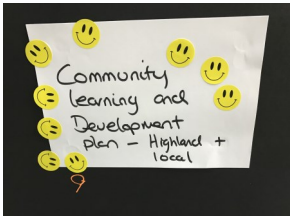 Community
learning and
Development
plan - Highland +
local
9